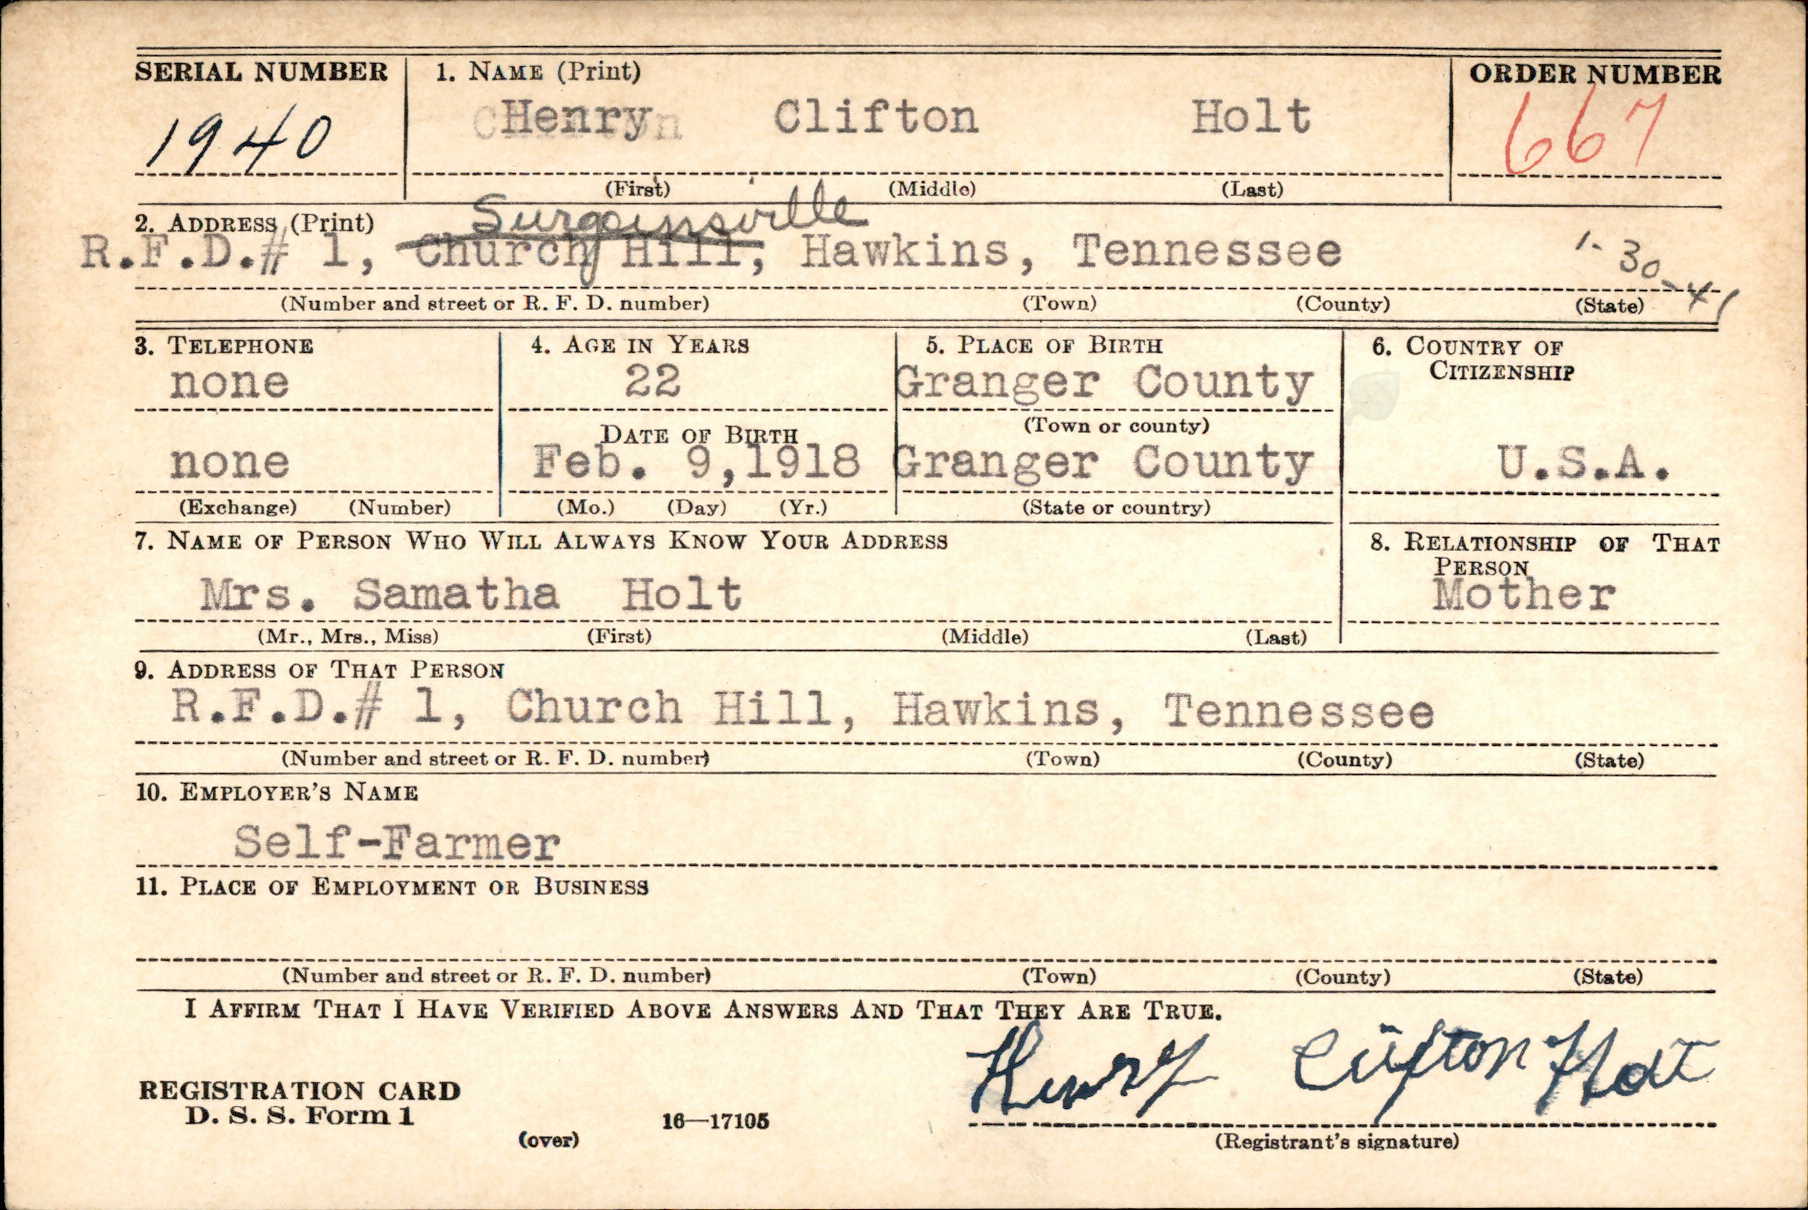 SERIAL NUMBER 1. NAME (Print) ORDER NUMBER
1940 Henry Clifton Holt 667
(First) (Middle) (Last)
2. ADDRESS (Print) Surgoinsville
R.F.D.# 1, Church Hill, Hawkins, Tennessee 1-30-41
(Number and street or R. F. D. number) (Town) (County) (State)
3. TELEPHONE 4. AGE IN YEARS 5. PLACE OF BIRTH 6. COUNTRY OF
CITIZENSHIP
none 22 Granger County
(Town or county)
DATE OF BIRTH
none Feb. 9,1918 Granger County U.S.A.
(Exchange) (Number) (Mo.) (Day) (Yr.) (State or country)
7. NAME OF PERSON WHO WILL ALWAYS KNOW YOUR ADDRESS 8. RELATIONSHIP OF THAT
PERSON
Mrs. Samatha Holt Mother
(Mr., Mrs., Miss) (First) (Middle) (Last)
9. ADDRESS OF THAT PERSON
R.F.D.# 1, Church Hill, Hawkins, Tennessee
(Number and street or R. F. D. number) (Town) (County) (State)
10. EMPLOYER'S NAME
Self-Farmer
11. PLACE OF EMPLOYMENT OR BUSINESS
(Number and street or R. F. D. number) (Town) (County) (State)
I AFFIRM THAT I HAVE VERIFIED ABOVE ANSWERS AND THAT THEY ARE TRUE.
Henry Clifton Holt
REGISTRATION CARD
D. S. S. Form 1 16—17105
(over) (Registrant's signature)